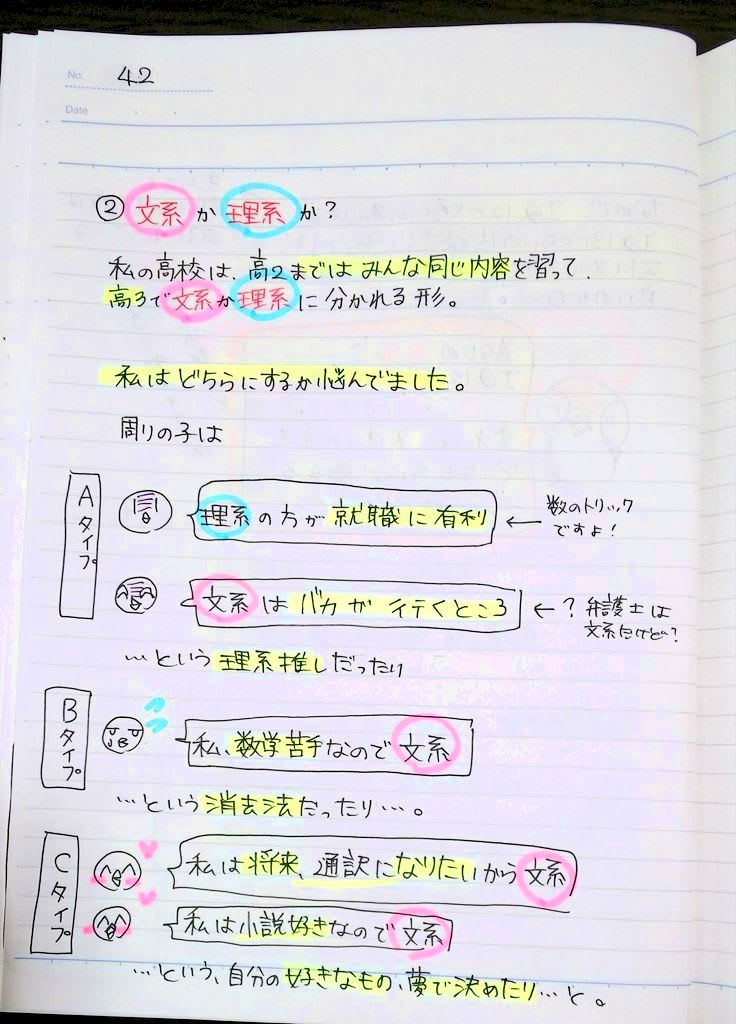 No. 42
Date
② 文系 か 理系 か?
私の高校は、高2までは みんな同じ内容を習って、
高3で文系か理系に分かれる形。
私はどちらにするか悩んでました。
周りの子は
Aタイプ
理系の方が就職に有利
← 数のトリック
ですよ!
文系はバカが行くところ
← ? 弁護士は
文系だけど?
…という理系推しだったり
Bタイプ
私、数学苦手なので文系
…という消去法だったり…。
Cタイプ
私は将来、通訳になりたいから文系
私は小説好きなので文系
…という、自分の好きなもの、夢で決めたり…と。